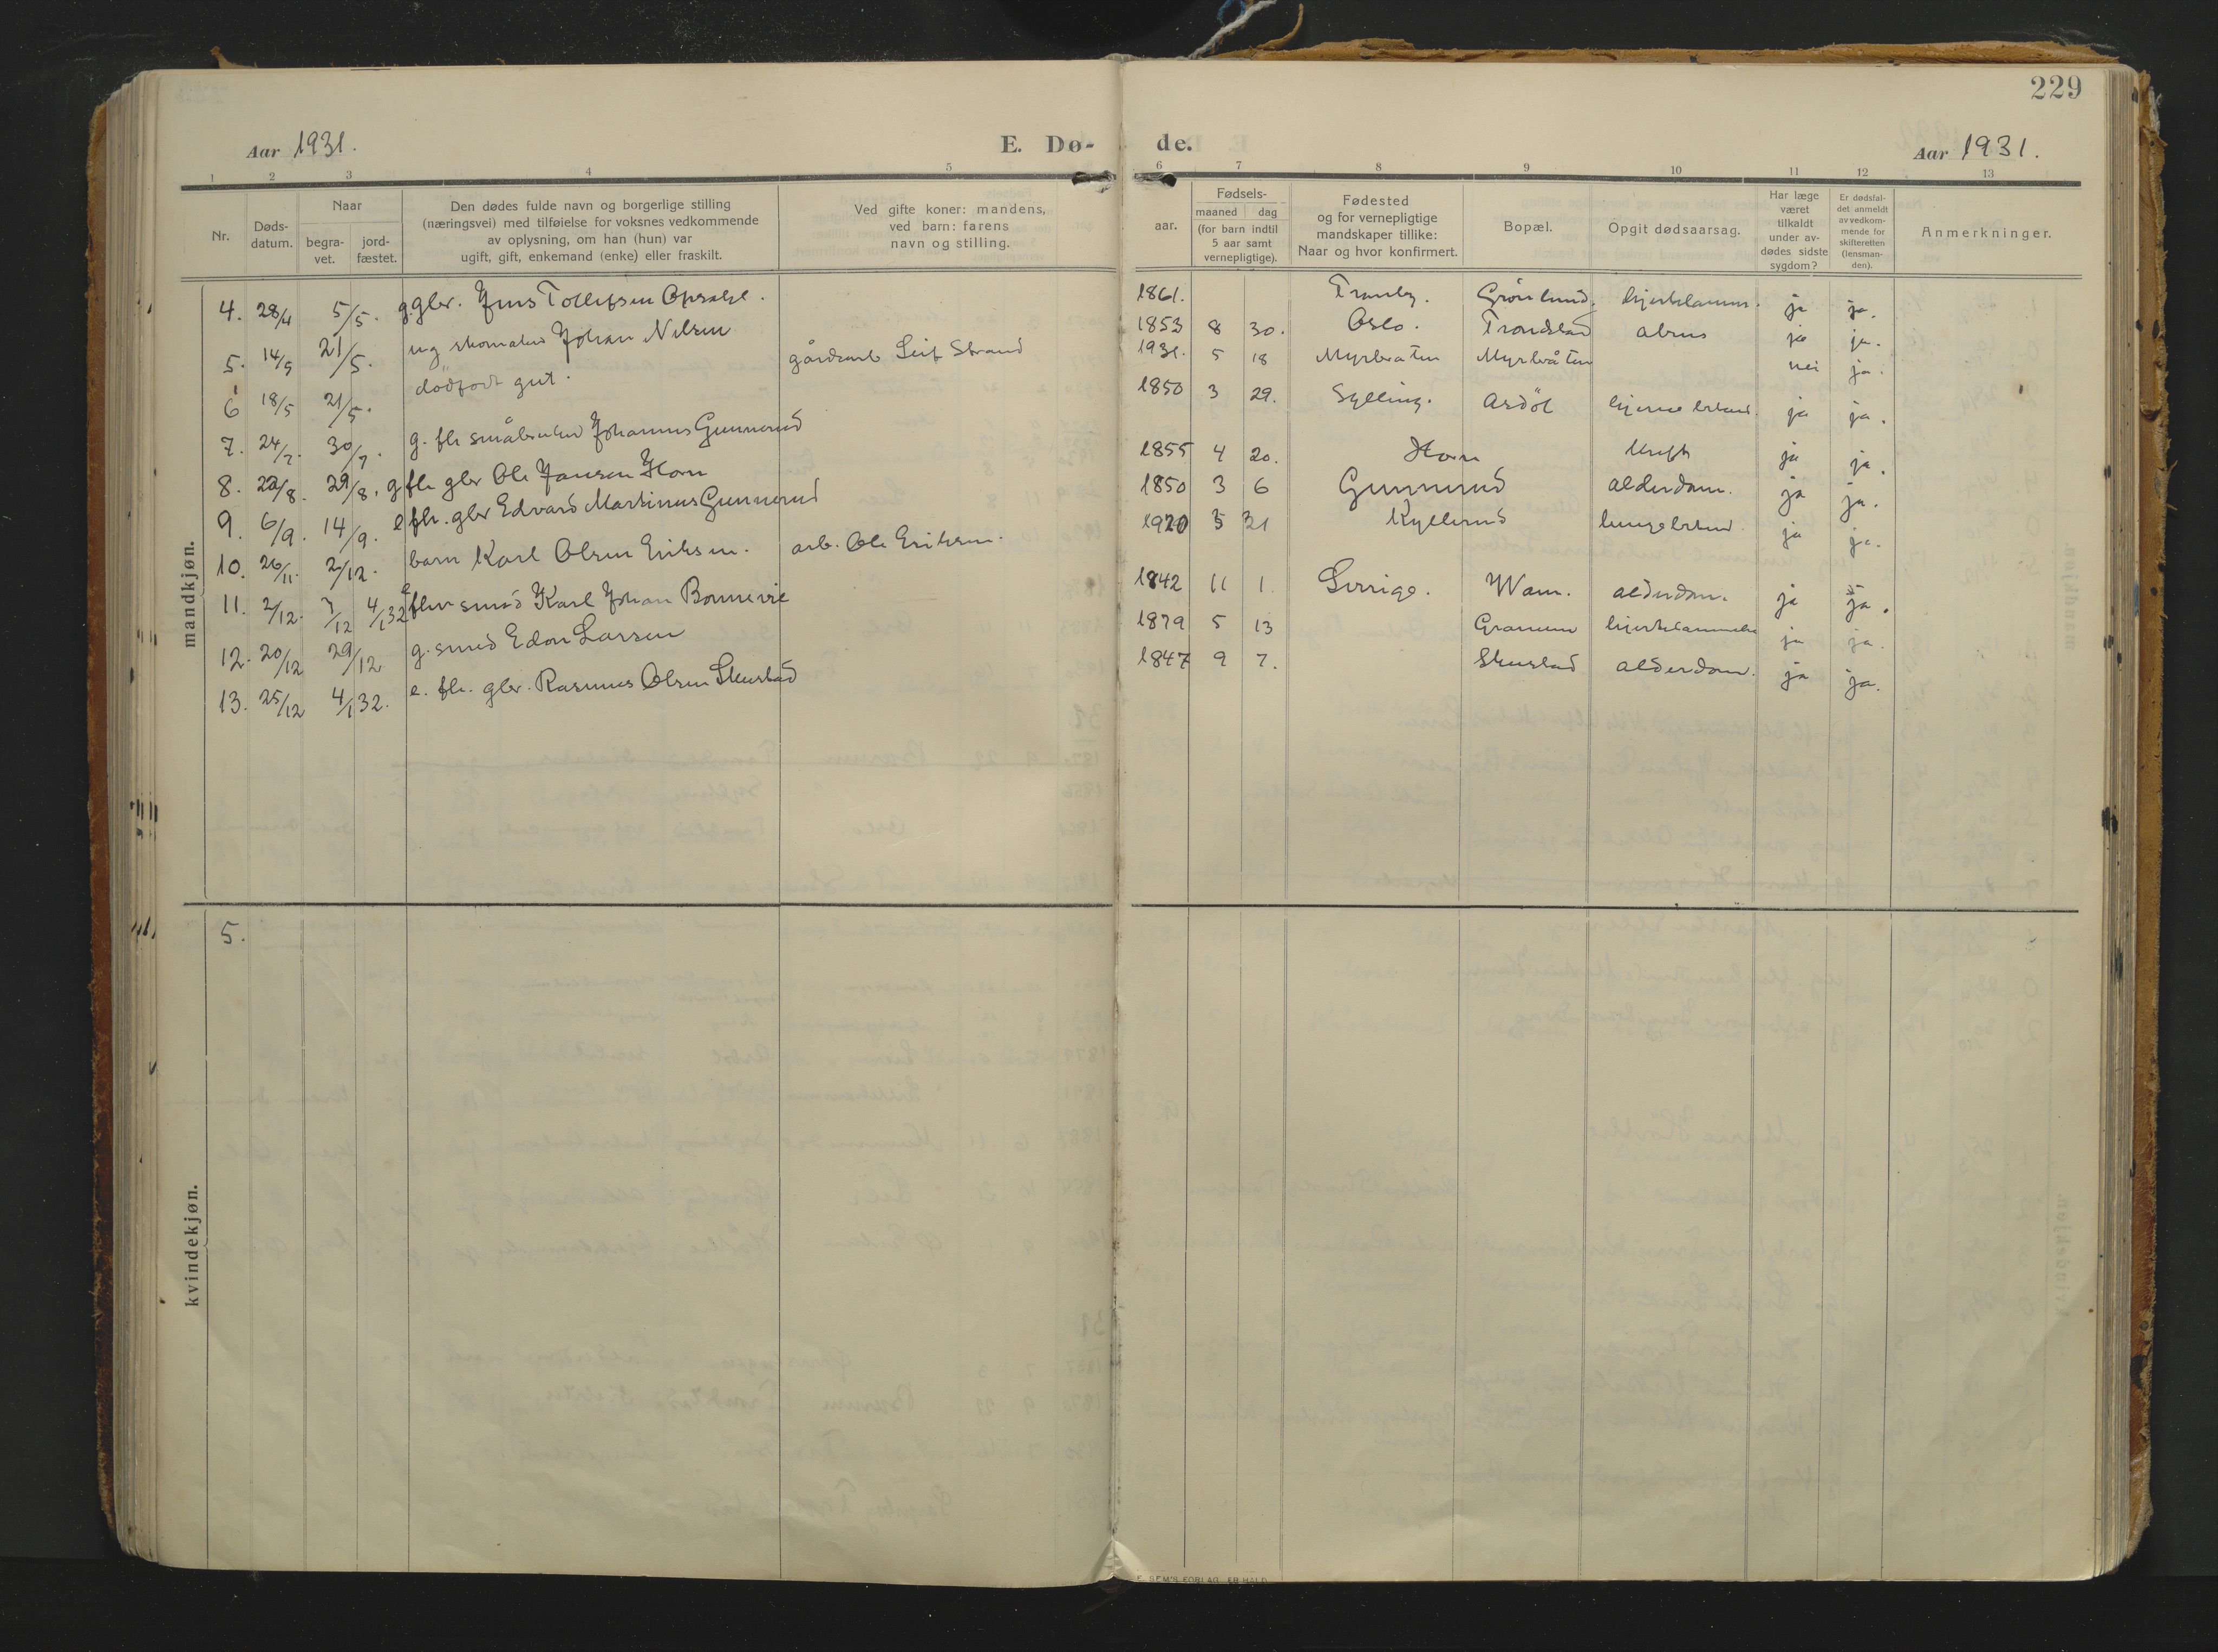 229
Aar 1931.
E. Dø-
de.
Aar 1931.
1 2 3 4 5 6 7 8 9 10 11 12 13
Nr.
Døds-
datum.
Naar
begra-
vet.
jord-
fæstet.
Den dødes fulde navn og borgerlige stilling
(næringsvei) med tilføielse for voksnes vedkommende
av oplysning, om han (hun) var
ugift, gift, enkemand (enke) eller fraskilt.
Ved gifte koner: mandens,
ved barn: farens
navn og stilling.
aar.
Fødsels-
maaned dag
(for barn indtil
5 aar samt
vernepligtige).
Fødested
og for vernepligtige
mandskaper tillike:
Naar og hvor konfirmert.
Bopæl.
Opgit dødsaarsag.
Har læge
været
tilkaldt
under av-
dødes sidste
sygdom?
Er dødsfal-
det anmeldt
av vedkom-
mende for
skifteretten
(lensman-
den).
Anmerkninger.
mandkjøn.
4. 28/4 5/5. g gbr. Jens Tollefsen Opsahl. 1861. Tranby. Grønlund. ja ja.
5. 14/5 21/5. ug skomaker Johan Nilsen 1853 8 30. Oslo. Trondstad ja ja.
6 18/5 21/5. dødfødt gut. gårdsarb Leif Strand 1931. 5 18 Myrbråten Myrbråten nei ja.
7. 24/7. 30/7. g. fh småbruker Johannes Gunnerud 1850 3 29. Sylling. Asdøl ja ja.
8. 22/8. 29/8. g fh gbr Ole Jansen Horn 1855 4 20. Horn kreft ja ja.
9. 6/9. 14/9. e fh. gbr Edvard Martinus Gunnerud 1850 3 6 Gunnerud alderdom. ja ja.
10. 26/11. 2/12. barn Karl Olsen Eriksen. arb. Ole Eriksen. 1920 5 21 Kyllerud ja ja.
11. 2/12. 7/12 4/1 32 smed Karl Johan 1842 11 1 Sverige. alderdom. ja ja.
12. 20/12 29/12 g. smed Edon Larsen 1879 5 13 ja ja.
13. 25/12 4/1 32. e. fh. gbr. Rasmus Olsen Skustad 1847 9 7. Skustad alderdom. ja ja.
kvindekjøn.
5.